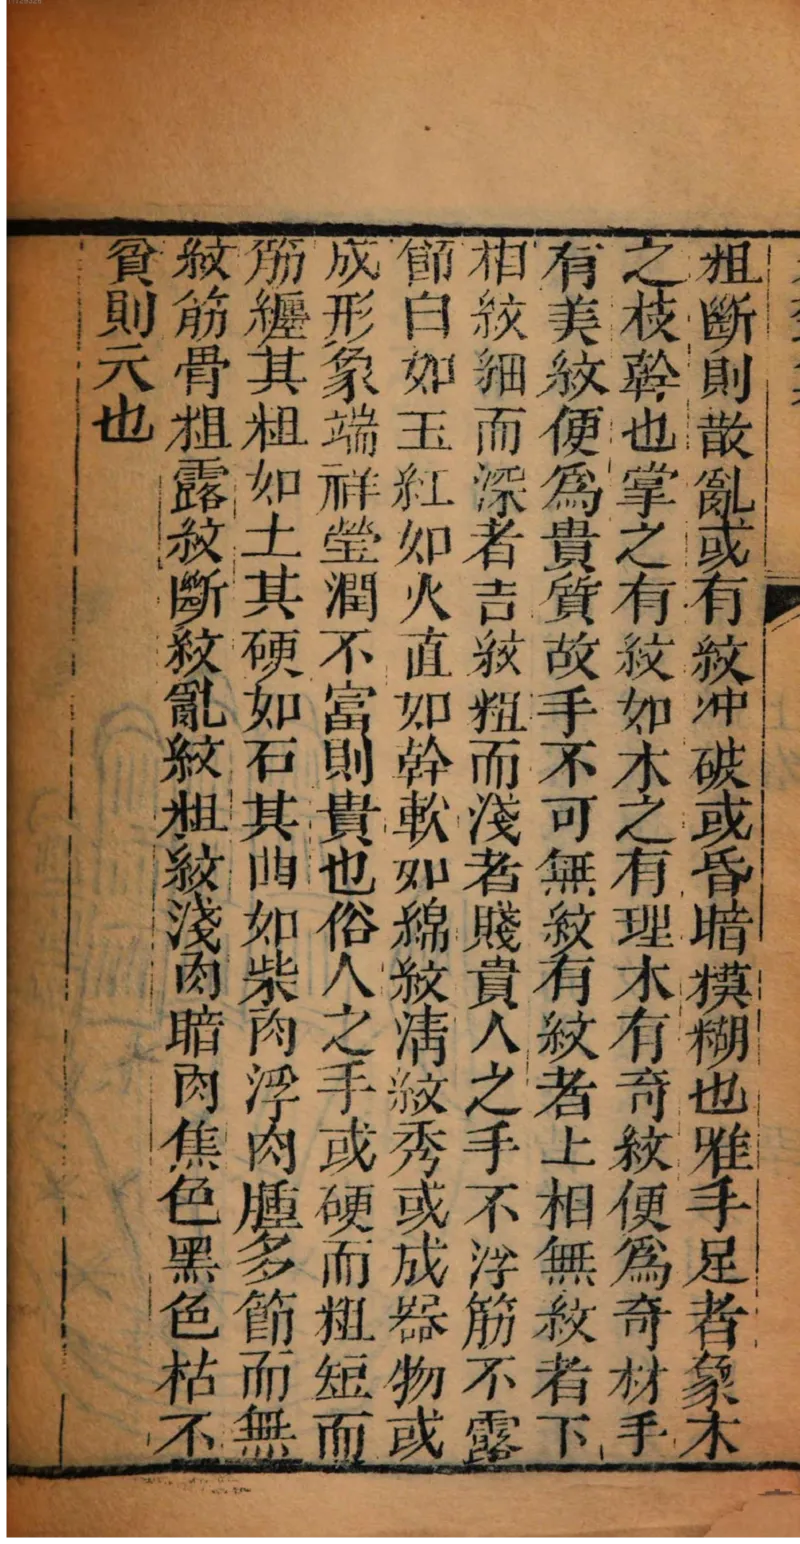 粗斷則散亂或有紋冲破或昏暗糢糊也雅手足者象木
之枝幹也掌之有紋如木之有理木有奇紋便爲奇材手
有美紋便爲貴質故手不可無紋有紋者上相無紋者下
相紋細而深者吉紋粗而淺者賤貴人之手不浮筋不露
節白如玉紅如火直如幹軟如綿紋淸紋秀或成器物或
成形象端祥瑩潤不富則貴也俗人之手或硬而粗短而
筋纏其粗如土其硬如石其曲如柴肉浮肉腫多節而無
紋筋骨粗露紋斷紋亂紋粗紋淺肉暗肉焦色黑色枯不
貧則夭也